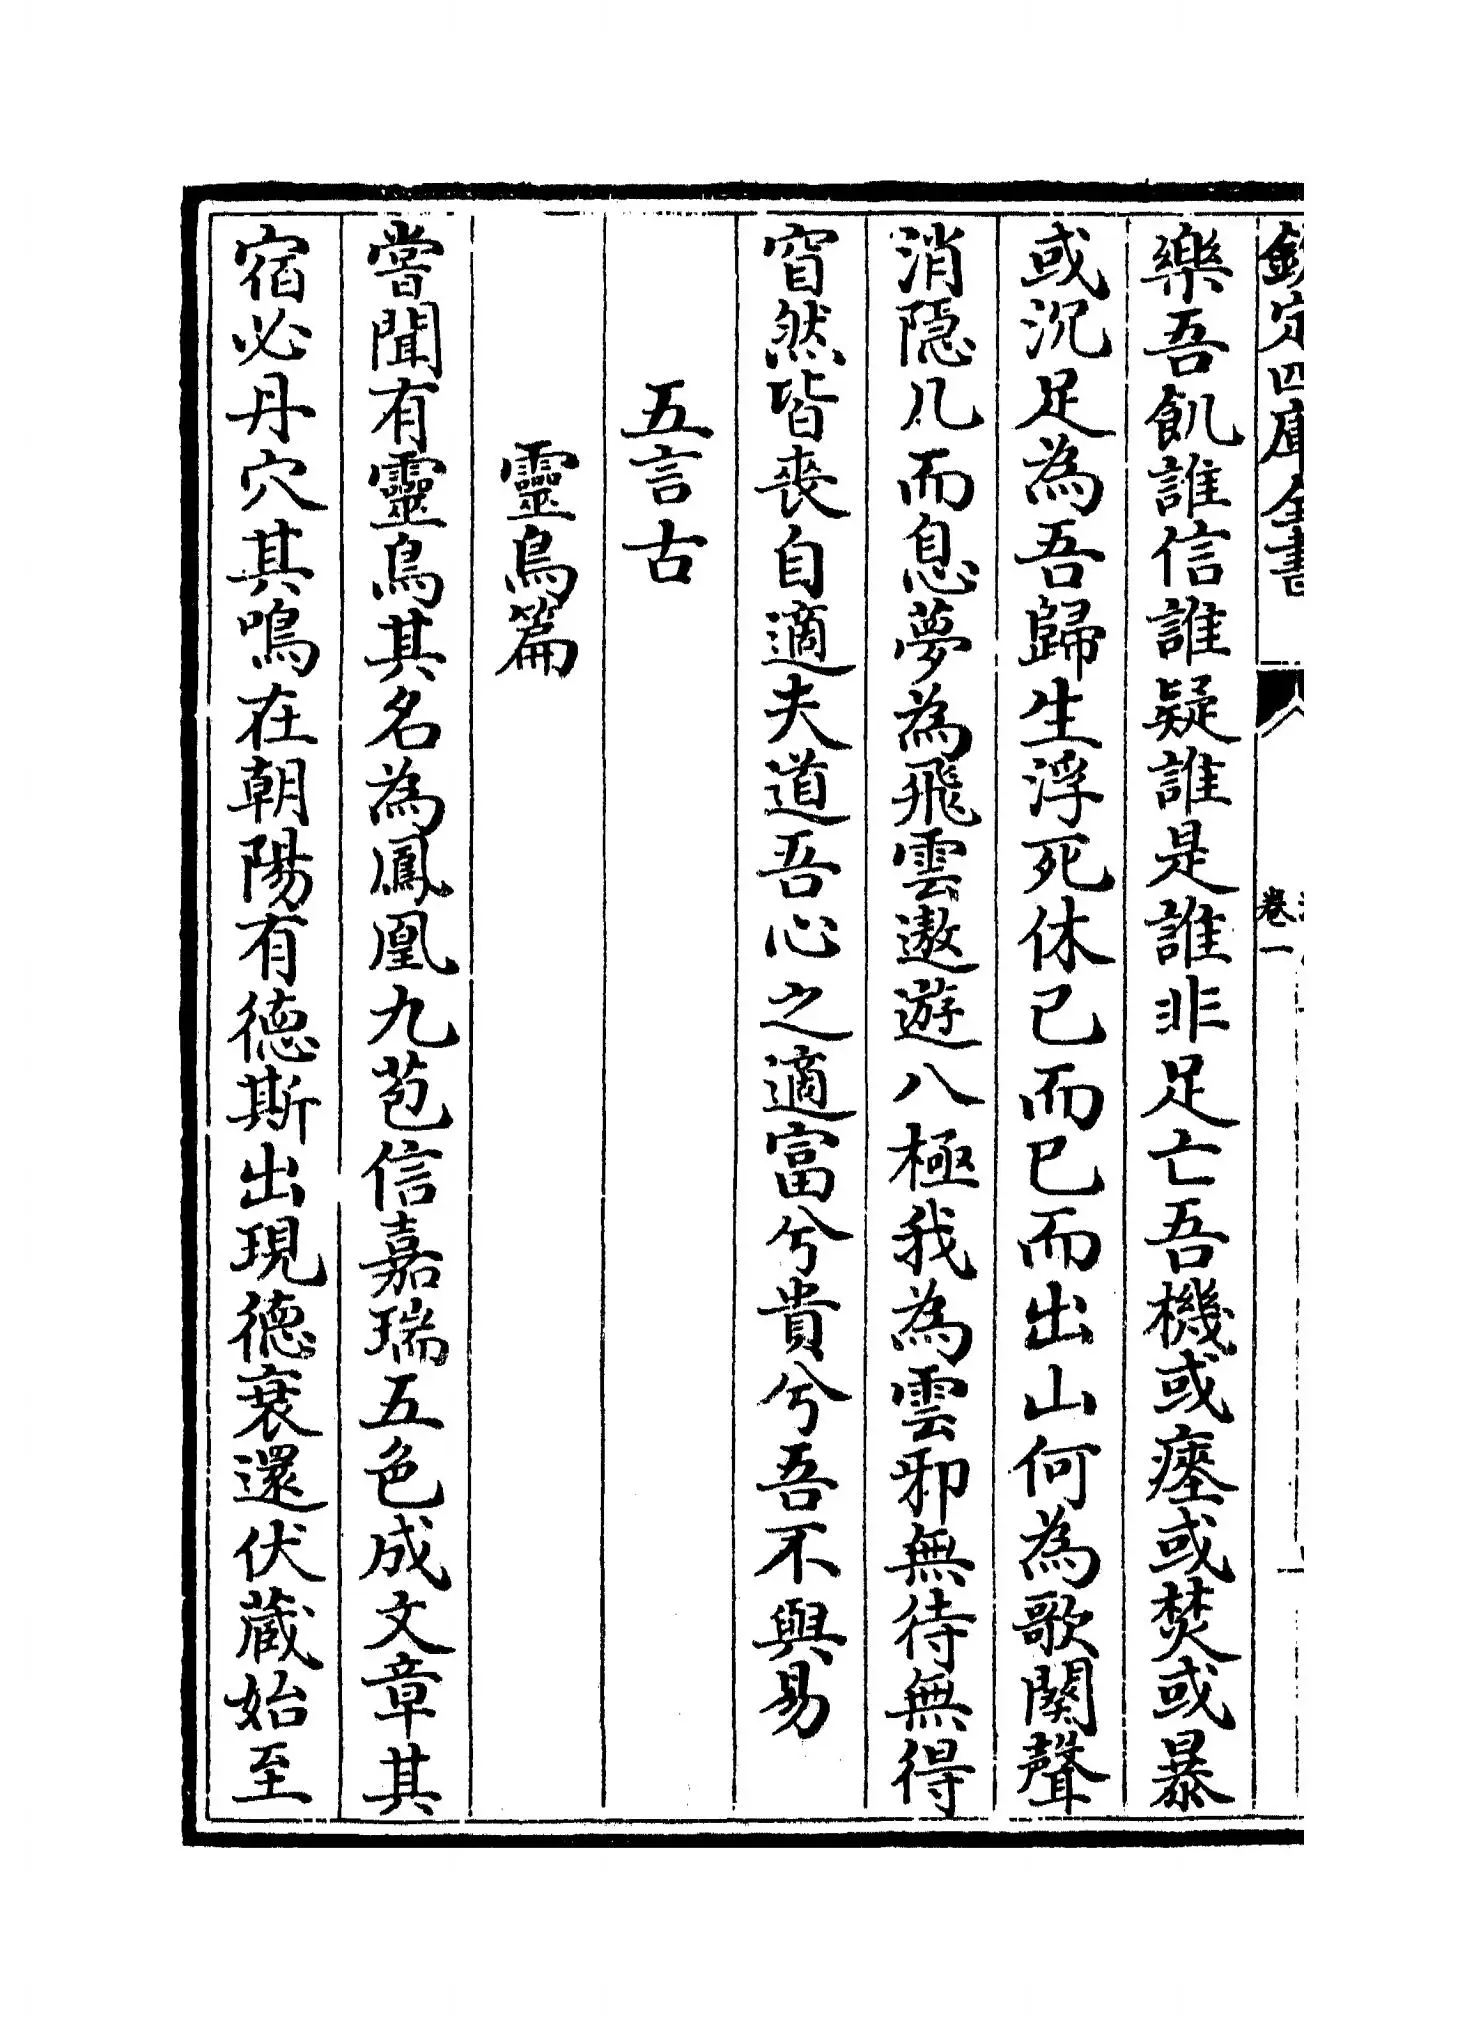 欽定四庫全書
卷一
樂吾飢誰信誰疑誰是誰非足亡吾機或瘞或焚或暴
或沉足為吾歸生浮死休已而已而出山何為歌闋聲
消隱几而息夢為飛雲遨遊八極我為雲邪無待無得
窅然皆喪自適夫道吾心之適富兮貴兮吾不與易
五言古
靈鳥篇
嘗聞有靈鳥其名為鳳凰九苞信嘉瑞五色成文章其
宿必丹穴其鳴在朝陽有德斯出現德衰還伏藏始至